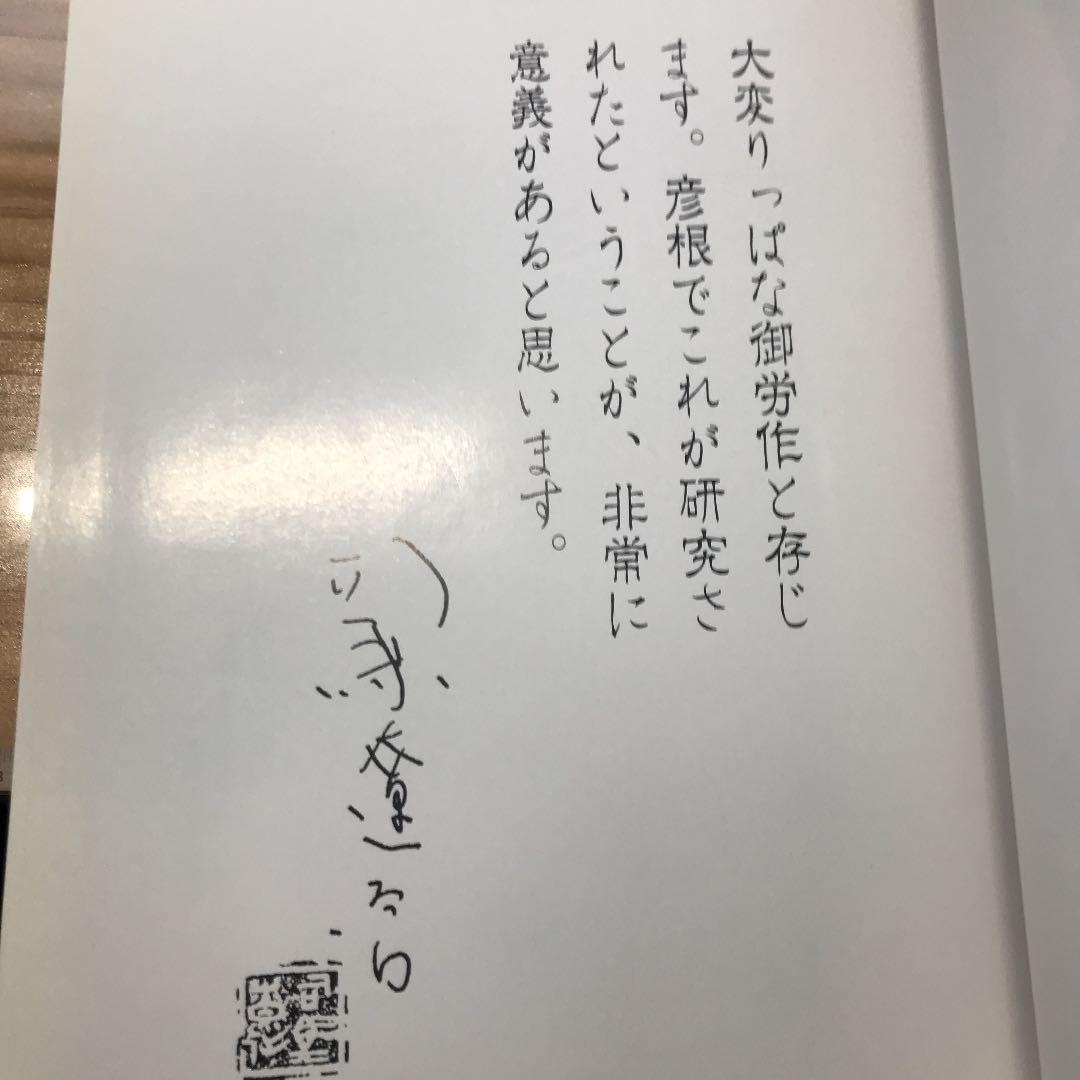 大変りっぱな御労作と存じ
ます。彦根でこれが研究さ
れたということが、非常に
意義があると思います。
司馬遼太郎